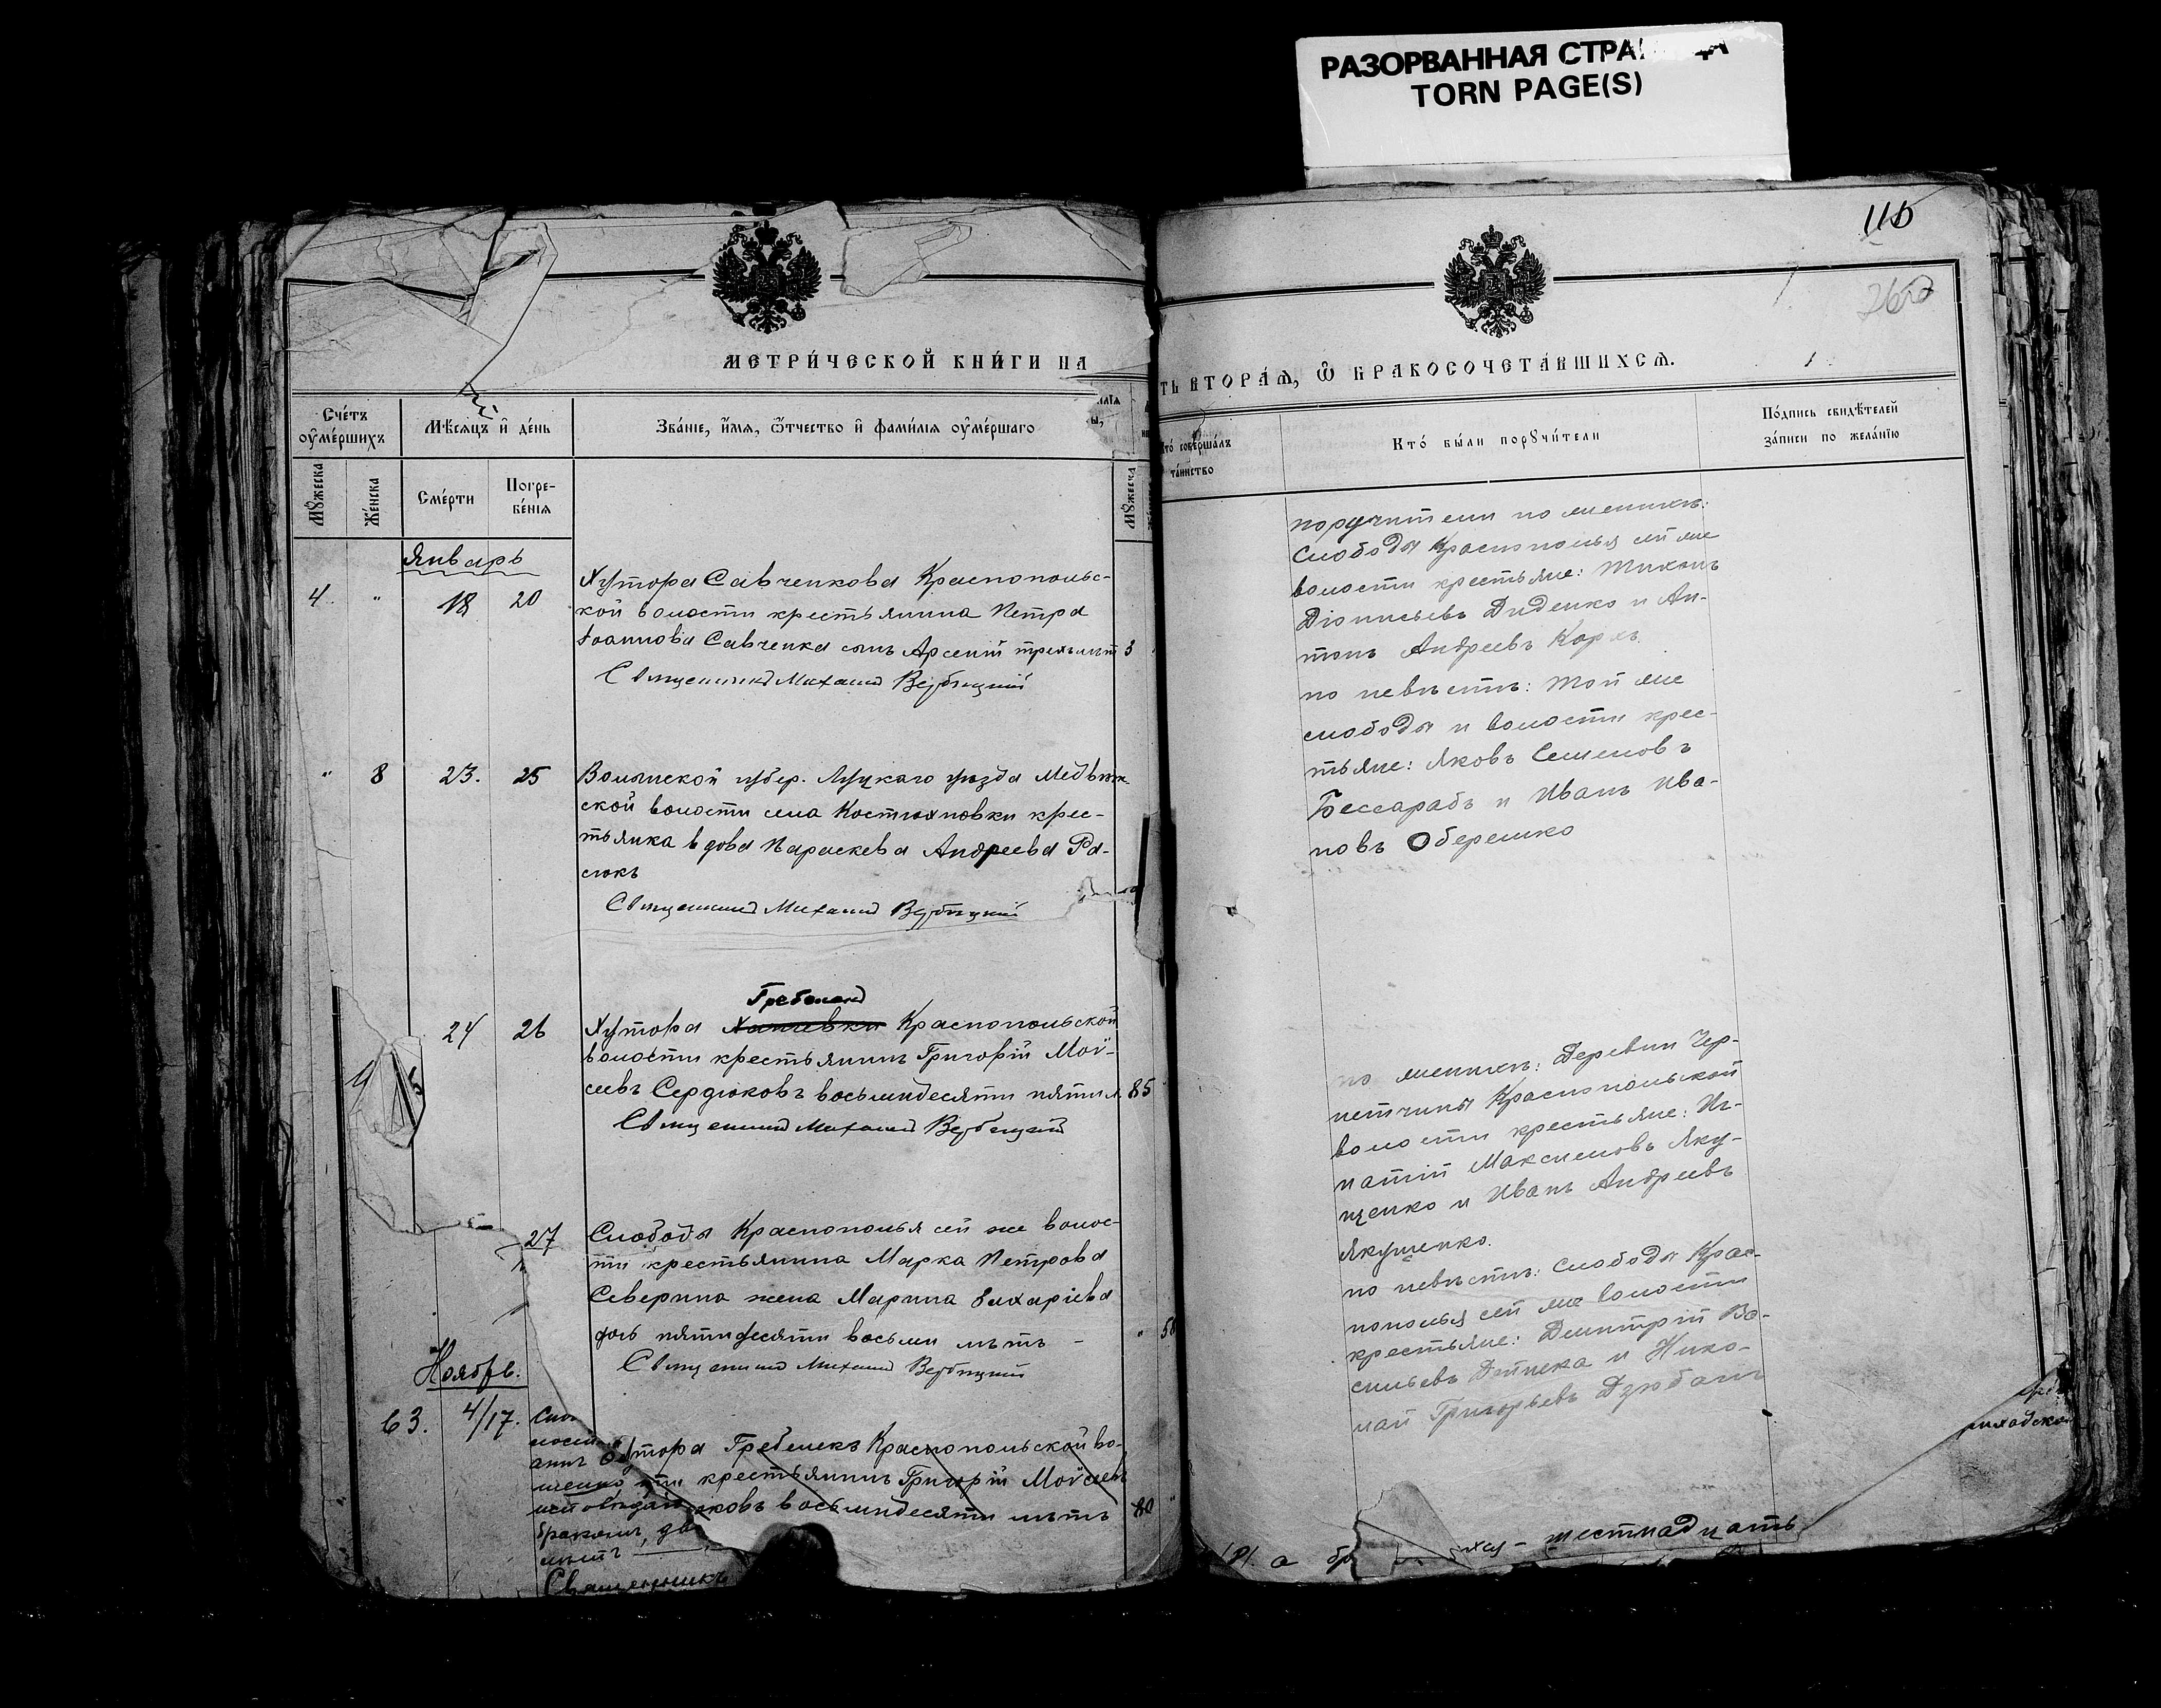 РАЗОРВАННАЯ СТРА
TORN PAGE(S)
110
МЕТРИ́ЧЕСКОЙ КНИ́ГИ НА
Сче́тъ оу҆ме́ршихъ
Мѣ́сяцъ и҆ де́нь
Зва́ніе, и҆́мѧ, ѻ҆́тчество и҆ фами́лія оу҆ме́ршаго
Мꙋ́жеска
Же́нска
Сме́рти
Погре-
бе́нія
Мꙋ́жеска
Январь
4. " 18 20
Хутора Савченкова Краснопольс-
кой волости крестьянина Петра
Іоаннова Савченка сынъ Арсеній трехъ лѣт 3
Священникъ Михаилъ Вербицкій
" 8 23. 25
Волынской губер. Луцкаго уѣзда Медвѣж-
ской волости села Костюхновки крес-
тьянка вдова Параскева Андреева Ра-
сюкъ
Священникъ Михаилъ Вербицкій
24 26
Хутора Краснопольской
волости крестьянинъ Григорій Мои-
сеевъ Сердюковъ восьмидесяти пяти л. 85
Священникъ Михаилъ Вербицкій
27
Слободы Краснополья сей же волос-
ти крестьянина Марка Петрова
Северина жена Марина Захаріева
дочь пятидесяти восьми лѣтъ - " 58
Священникъ Михаилъ Вербицкій
Ноябрь.
63. 4/17.
Хутора Гребеникъ Краснопольской во-
ти крестьянинъ Григорій Моисеевъ
ковъ восьмидесяти лѣтъ 80
Священникъ
ТЬ ВТОРА́Ѧ, Ѽ БРАКОСОЧЕТА́ВШИХСѦ.
Кто́ соверша́лъ
та́инство
Кто́ бы́ли порꙋчи́тели
По́дпись свидѣ́телей
за́писи по жела́нію
поручители по женихѣ:
Слободы Краснополья сей же
волости крестьяне: Тихонъ
Діонисіевъ Диденко и Ан-
тонъ Андреевъ Коржъ.
по невѣстѣ: той же
слободы и волости крес-
тьяне: Яковъ Семеновъ
Бессарабъ и Иванъ Ива-
новъ Оберешко
по женихѣ: Деревни Чер-
нетчины Краснопольской
волости крестьяне: Иг-
натій Максимовъ Яку-
щенко и Иванъ Андреевъ
Якущенко.
по невѣстѣ: слободы Крас-
нополья сей же волости
крестьяне: Димитрій Ва-
сильевъ Дейнека и Нико-
лай Григорьевъ Дзюбанъ
шестнадцать